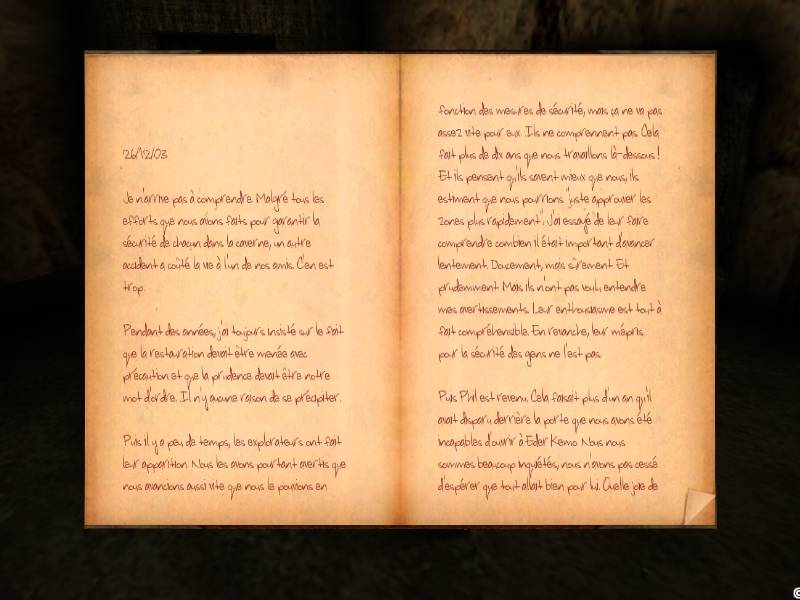 26/12/03
Je n'arrive pas à comprendre. Malgré tous les
efforts que nous avons faits pour garantir la
sécurité de chacun dans la caverne, un autre
accident a coûté la vie à l'un de nos amis. C'en est
trop.
Pendant des années, j'ai toujours insisté sur le fait
que la restauration devait être menée avec
précaution et que la prudence devait être notre
mot d'ordre. Il n'y aucune raison de se précipiter.
Puis il y a peu de temps, les explorateurs ont fait
leur apparition. Nous les avons pourtant avertis que
nous avancions aussi vite que nous le pouvions en
fonction des mesures de sécurité, mais ça ne va pas
assez vite pour eux. Ils ne comprennent pas. Cela
fait plus de dix ans que nous travaillons là-dessous !
Et ils pensent qu'ils savent mieux que nous, ils
estiment que nous pourrions "juste approuver les
zones plus rapidement". J'ai essayé de leur faire
comprendre combien il était important d'avancer
lentement. Doucement, mais sûrement. Et
prudemment. Mais ils n'ont pas voulu entendre
mes avertissements. Leur enthousiasme est tout à
fait compréhensible. En revanche, leur mépris
pour la sécurité des gens ne l'est pas.
Puis Phil est revenu. Cela faisait plus d'un an qu'il
avait disparu derrière la porte que nous avons été
incapables d'ouvrir à Eder Kemo. Nous nous
sommes beaucoup inquiétés, nous n'avons pas cessé
d'espérer que tout allait bien pour lui. Quelle joie de